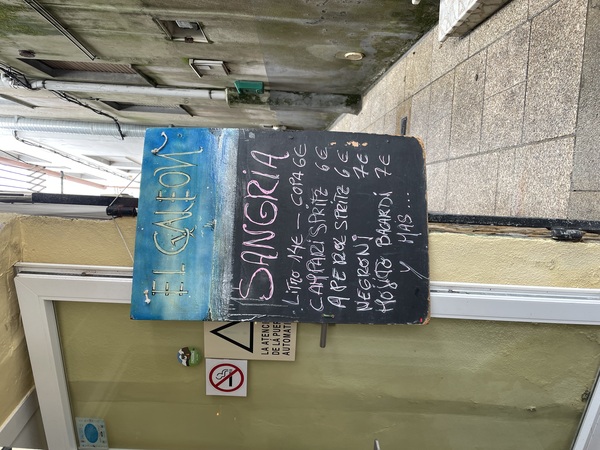 EL GALEON
SANGRIA
LITRO 14€ - COPA 6€
CAMPARI SPRITZ 6€
APEROL SPRITZ 6€
NEGRONI 7€
MOJITO BACARDI 7€
Y MAS...
LA ATENC
DE LA PUE
AUTOMATI